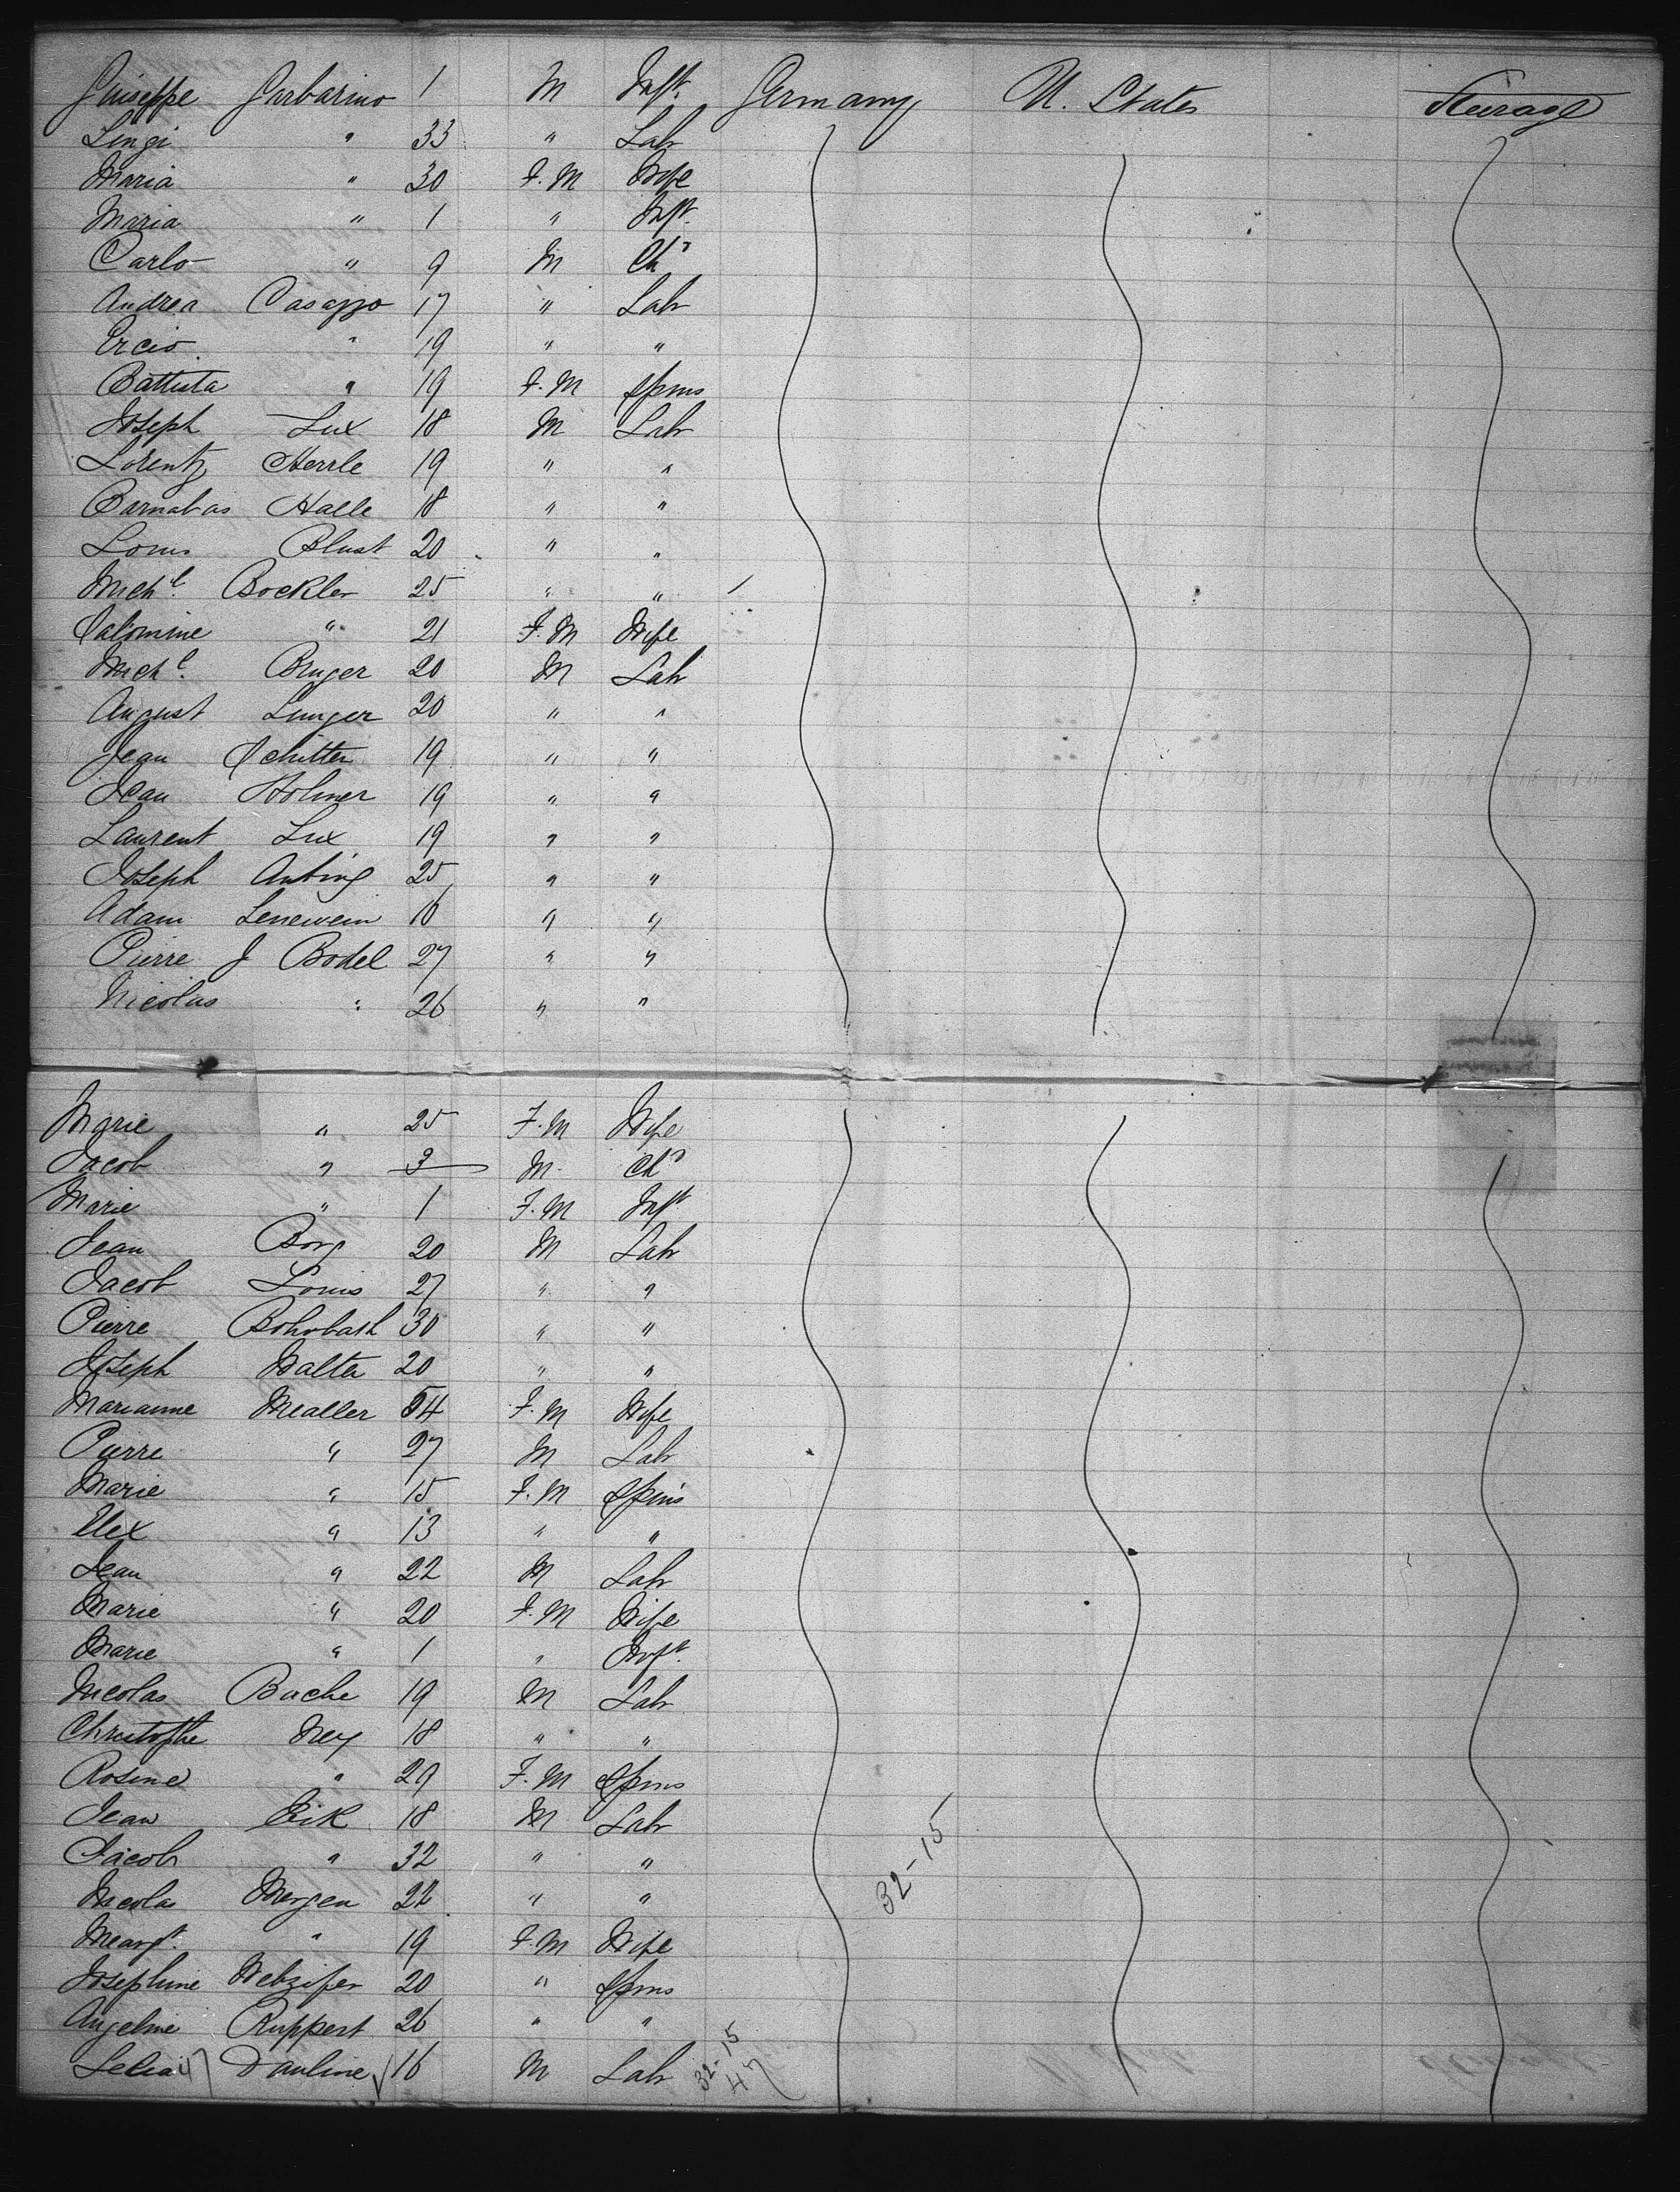 Guiseppe Garbarino 1 M Inft. Germany U. States Steerage
Luigi " 33 " Lab
Maria " 30 F.M Wife
Maria " 1 " Inft.
Carlo " 9 M Chd
Andrea Casazzo 17 " Lab
Ercio " 19 " "
Battista " 19 F.M Spins
Joseph Lux 18 M Lab
Lorentz Herrle 19 " "
Barnabas Halle 18 " "
Louis Blust 20 " "
Michl. Bockler 25 " "
Salomine " 21 F.M Wife
Michl. Bruger 20 M Lab
August Lunger 20 " "
Jean Schitter 19 " "
Jean Holmer 19 " "
Laurent Lux 19 " "
Joseph Anting 25 " "
Adam Lenewein 16 " "
Pierre J Bodel 27 " "
Nicolas " 26 " "
Marie " 25 F.M Wife
Jacob " 3 M Chd
Marie " 1 F.M Inft
Jean Borg 20 M Lab
Jacob Louis 27 " "
Pierre Bohrbash 30 " "
Joseph Walter 20 " "
Marianne Mealler 54 F.M Wife
Pierre " 27 M Lab
Marie " 15 F.M Spins
Elex " 13 " "
Jean " 22 M Lab
Marie " 20 F.M Wife
Marie " 1 " Inft.
Nicolas Bache 19 M Lab
Christophe Ney 18 " "
Rosine " 29 F.M Spins
Jean Eik 18 M Lab
Jacob " 32 " "
Nicolas Mergen 22 " "
32-15
Margt. " 19 F.M Wife
Josephine Webzifer 20 " Spins
Angeline Ruppert 26 " "
Lelia 47 Dauline 16 M Lab 32-15
47